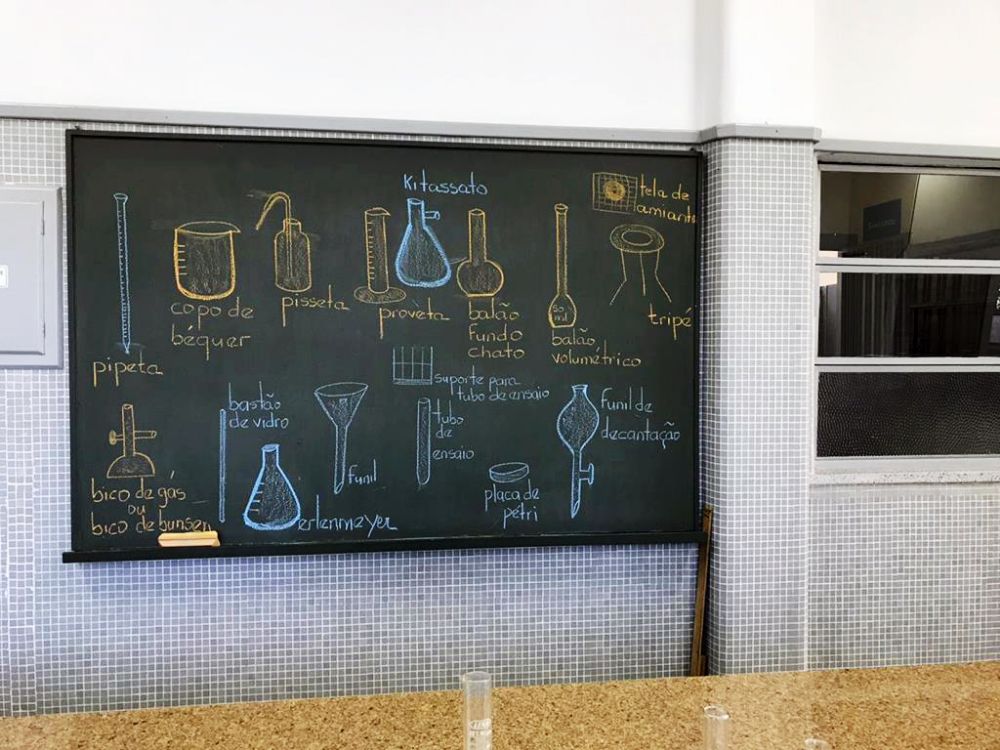 Kitassato
tela de
amianto
copo de
béquer
pisseta
provèta
balão
fundo
chato
50
ml
balão
volumétrico
tripé
pipeta
suporte para
tubo de ensaio
bastão
de vidro
funil
tubo
de
ensaio
funil de
decantação
placa de
petri
bico de gás
ou
bico de bunsen
erlenmeyer